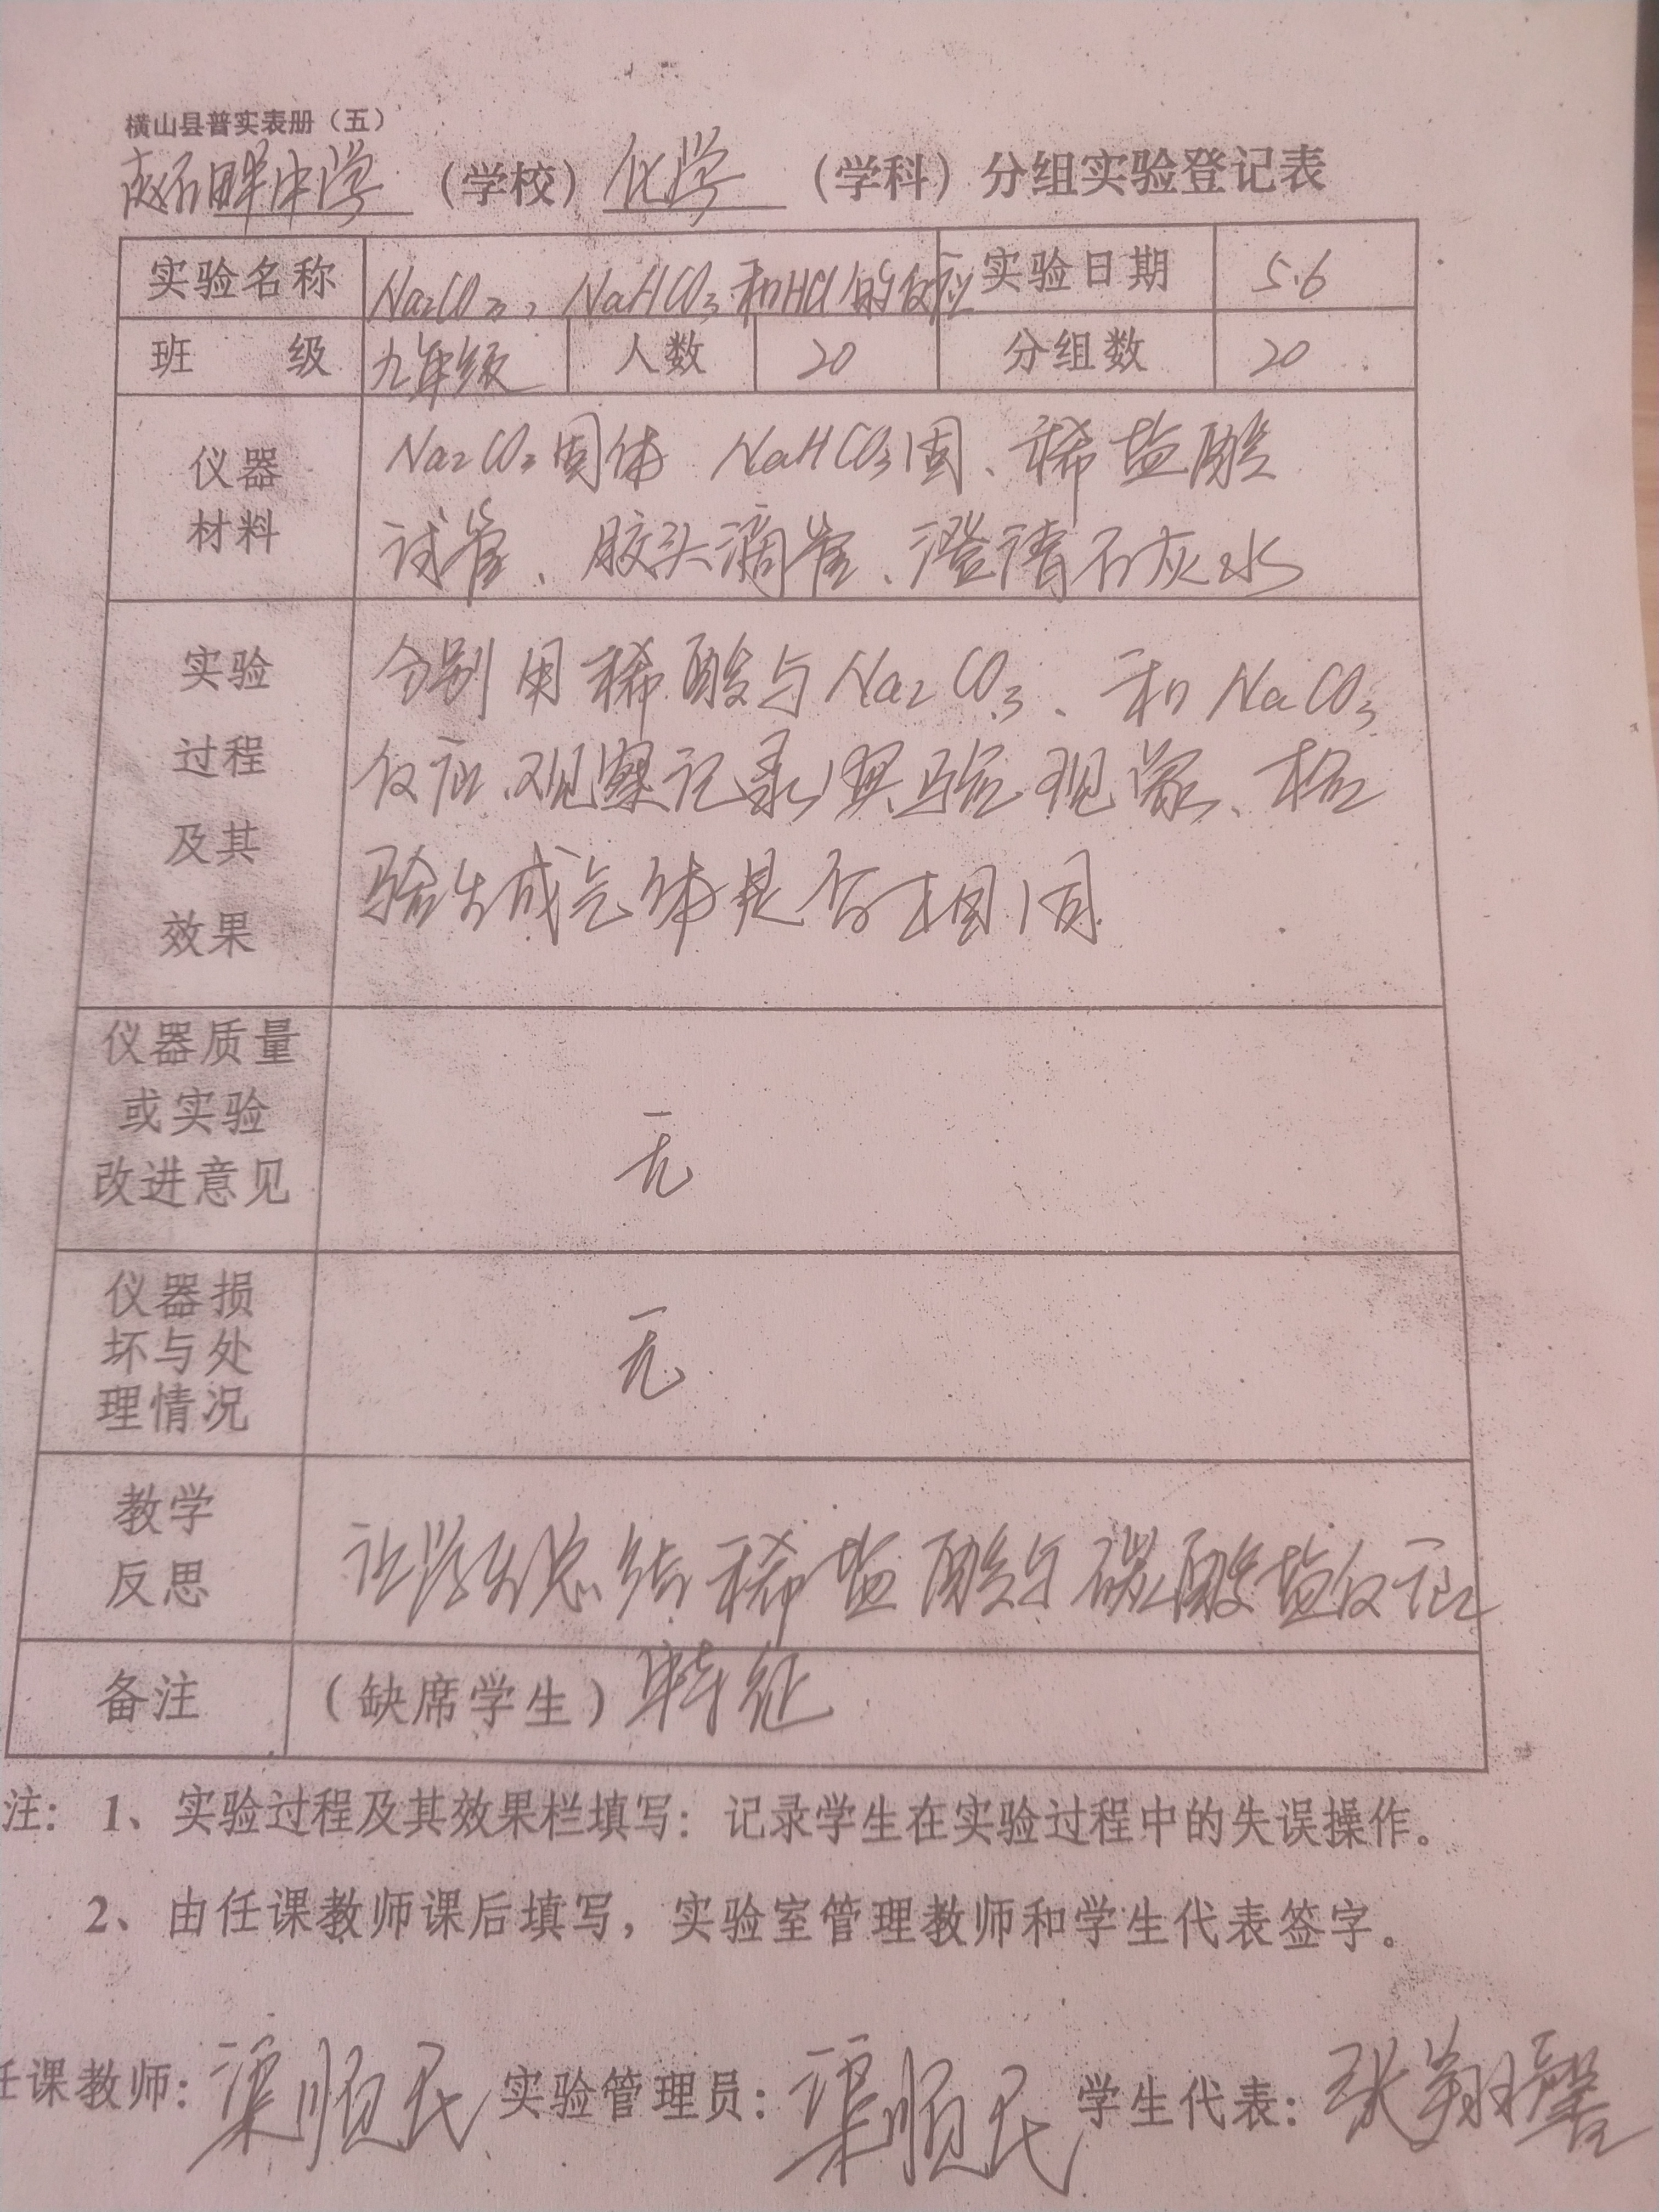 横山县普实表册（五）
赵石畔中学（学校）化学（学科）分组实验登记表
实验名称 Na₂CO₃、NaHCO₃和HCl的反应 实验日期 5.6
班 级 九年级 人数 20 分组数 20
仪器
材料
Na₂CO₃固体 NaHCO₃固、稀盐酸
试管、胶头滴管、澄清石灰水
实验
过程
及其
效果
分别用稀酸与Na₂CO₃、和NaCO₃
反应、观察记录实验现象、检
验生成气体是否相同
仪器质量
或实验
改进意见
无
仪器损
坏与处
理情况
无
教学
反思
让学生总结稀盐酸与碳酸盐反应
特征
备注 （缺席学生）
注：1、实验过程及其效果栏填写：记录学生在实验过程中的失误操作。
2、由任课教师课后填写，实验室管理教师和学生代表签字。
任课教师：渠顺民 实验管理员：渠顺民 学生代表：张翔馨